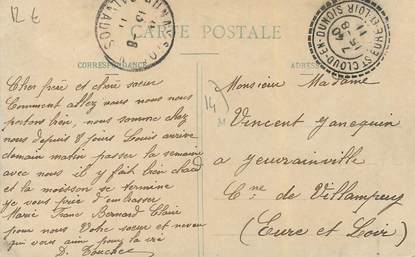 12 €
CARTE POSTALE
CORRESPONDANCE
ADRESSE
Cher frère et chère sœur
Comment allez vous nous nous
portons bien, nous somme chez
nous depuis 8 jours Louis arrive
domain matin passer la semaine
avec nous il y fait bien chaud
et la moisson se termine
je vous prie d'embrasser
Marie Franc Bernard Claire
pour nous Votre sœur et neveu
qui vous aim pour la vie
D. Touchet
14
Monsieur Madame
M
Vincent
a
Cne de Villampuy
(Eure et Loir)
CALVADOS
ST CLOUD-EN-DUNOIS
EURE-ET-LOIR